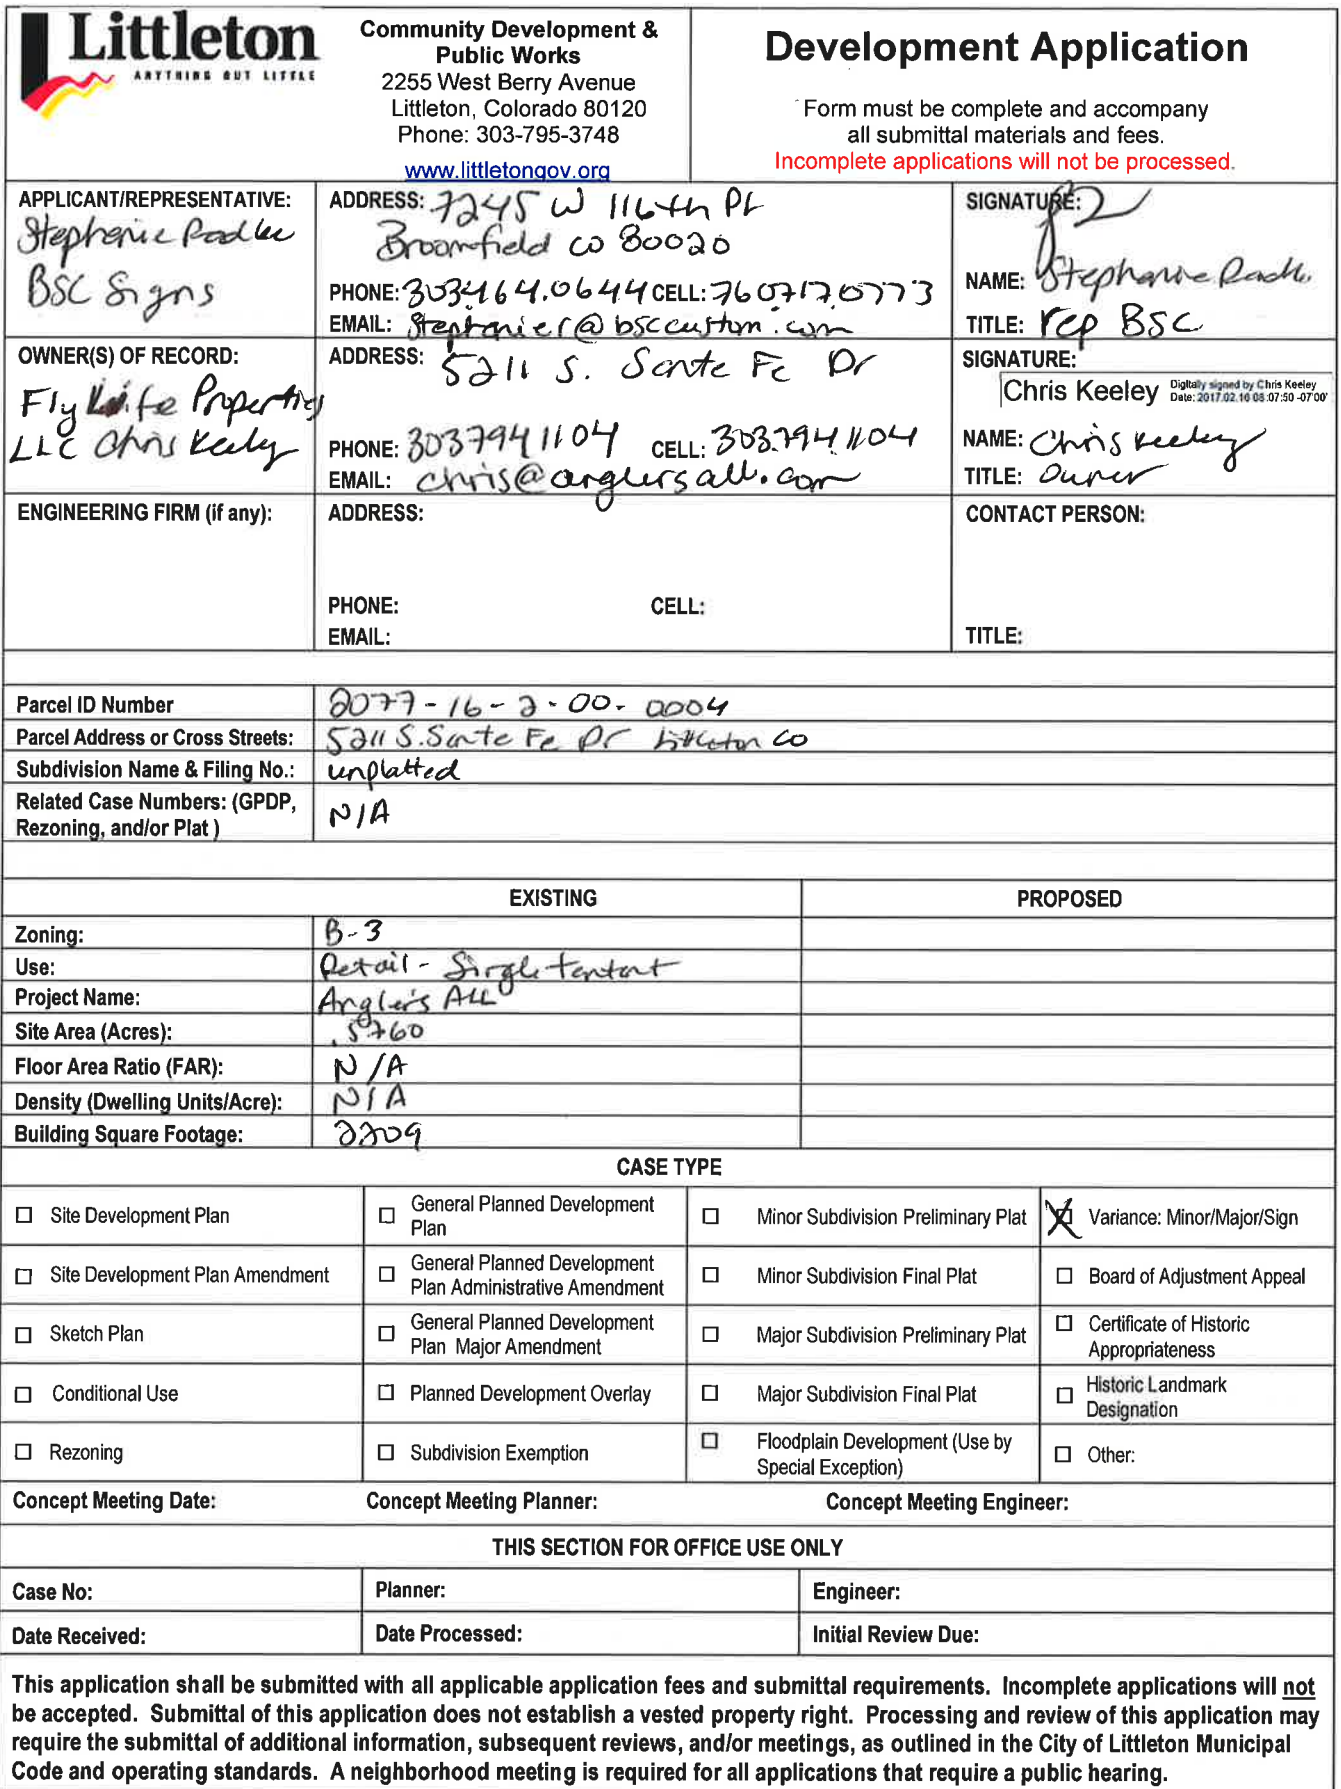 Littleton
ANYTHING BUT LITTLE
Community Development &
Public Works
2255 West Berry Avenue
Littleton, Colorado 80120
Phone: 303-795-3748
www.littletongov.org
Development Application
Form must be complete and accompany
all submittal materials and fees.
Incomplete applications will not be processed.
APPLICANT/REPRESENTATIVE:
Stephanie Radke
BSC Signs
ADDRESS: 7245 W 116th PL
Broomfield CO 80020
PHONE: 303464.0644 CELL: 7607170773
EMAIL: Stephanier@bsccustom.com
SIGNATURE:
NAME: Stephanie Radke
TITLE: rep BSC
OWNER(S) OF RECORD:
Fly Life Properties
LLC Chris Keely
ADDRESS: 5211 S. Sante Fe Dr
PHONE: 3037941104 CELL: 303.7941104
EMAIL: chris@anglersall.com
SIGNATURE:
Chris Keeley Digitally signed by Chris Keeley
Date: 2017.02.16 08:07:50 -07'00'
NAME: Chris Keeley
TITLE: Owner
ENGINEERING FIRM (if any):
ADDRESS:
PHONE: CELL:
EMAIL:
CONTACT PERSON:
TITLE:
Parcel ID Number 2077-16-2-00-0004
Parcel Address or Cross Streets: 5211 S. Sante Fe Dr Littleton CO
Subdivision Name & Filing No.: unplatted
Related Case Numbers: (GPDP,
Rezoning, and/or Plat ) N/A
EXISTING PROPOSED
Zoning: B-3
Use: Retail - Single tentant
Project Name: Angler's ALL
Site Area (Acres): .5760
Floor Area Ratio (FAR): N/A
Density (Dwelling Units/Acre): N/A
Building Square Footage: 2209
CASE TYPE
Site Development Plan
General Planned Development
Plan
Minor Subdivision Preliminary Plat
X Variance: Minor/Major/Sign
Site Development Plan Amendment
General Planned Development
Plan Administrative Amendment
Minor Subdivision Final Plat
Board of Adjustment Appeal
Sketch Plan
General Planned Development
Plan Major Amendment
Major Subdivision Preliminary Plat
Certificate of Historic
Appropriateness
Conditional Use
Planned Development Overlay
Major Subdivision Final Plat
Historic Landmark
Designation
Rezoning
Subdivision Exemption
Floodplain Development (Use by
Special Exception)
Other:
Concept Meeting Date: Concept Meeting Planner: Concept Meeting Engineer:
THIS SECTION FOR OFFICE USE ONLY
Case No: Planner: Engineer:
Date Received: Date Processed: Initial Review Due:
This application shall be submitted with all applicable application fees and submittal requirements. Incomplete applications will not
be accepted. Submittal of this application does not establish a vested property right. Processing and review of this application may
require the submittal of additional information, subsequent reviews, and/or meetings, as outlined in the City of Littleton Municipal
Code and operating standards. A neighborhood meeting is required for all applications that require a public hearing.